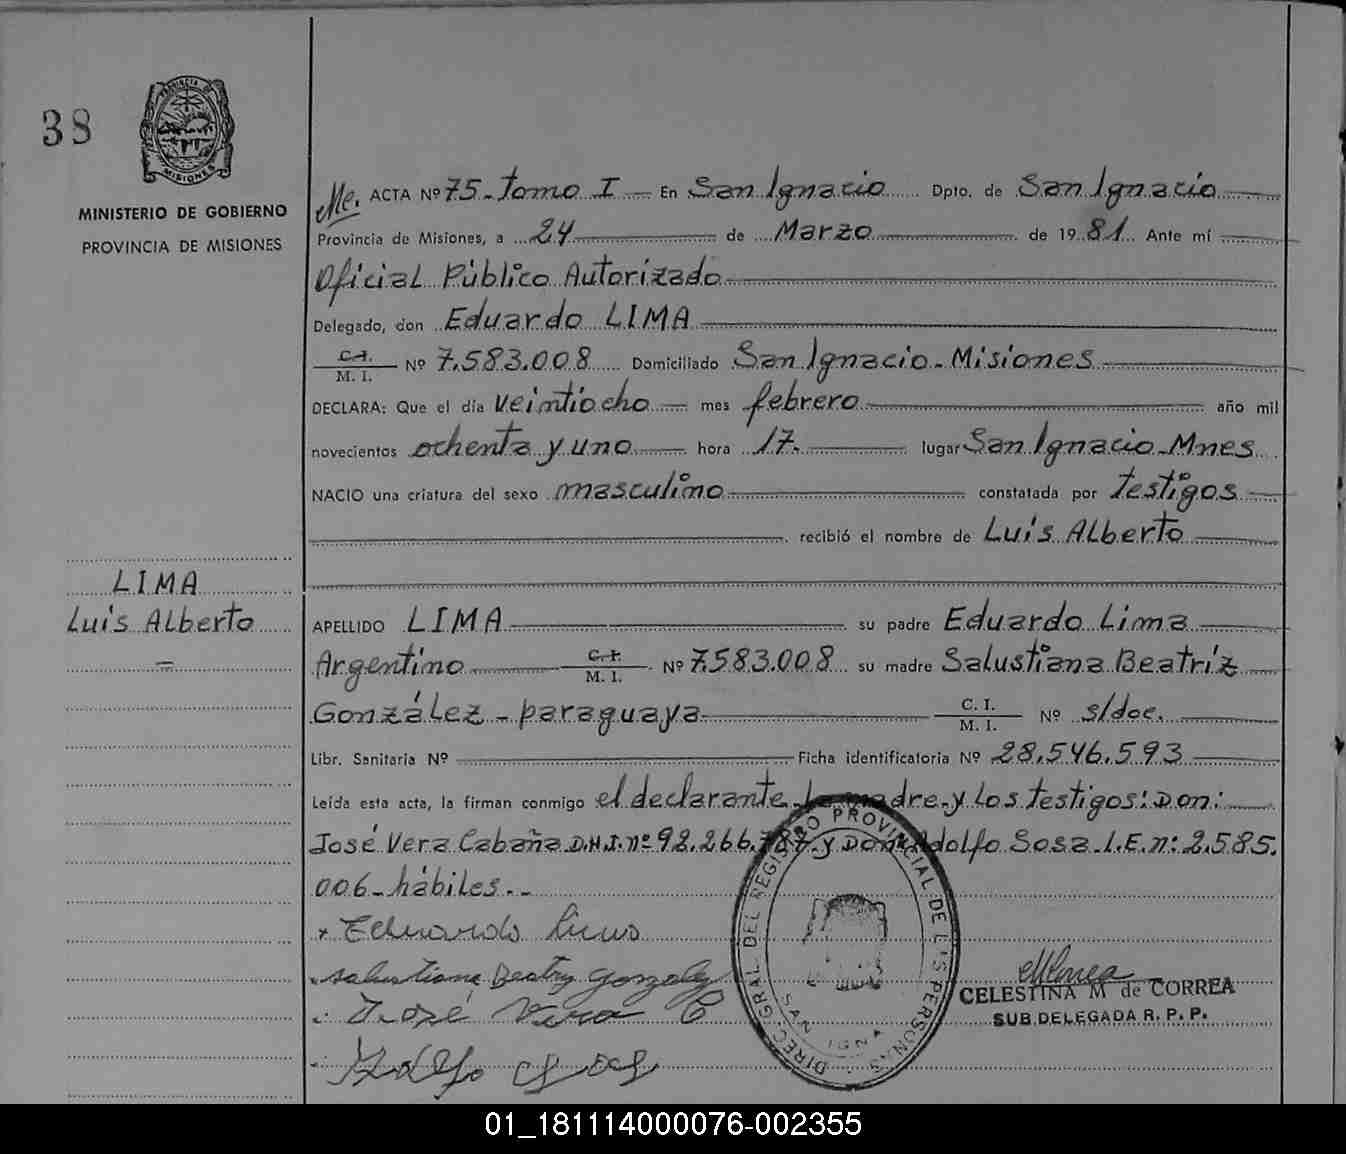 38
PROVINCIA DE
MISIONES
MINISTERIO DE GOBIERNO
PROVINCIA DE MISIONES
ACTA Nº 75 - tomo I En San Ignacio Dpto. de San Ignacio
Provincia de Misiones, a 24 de Marzo de 1981 Ante mí
Oficial Público Autorizado
Delegado, don Eduardo LIMA
C.I. M. I. Nº 7.583.008 Domiciliado San Ignacio - Misiones
DECLARA: Que el día veintiocho mes febrero año mil
novecientos ochenta y uno hora 17. lugar San Ignacio - Mnes
NACIO una criatura del sexo masculino constatada por testigos
recibió el nombre de Luis Alberto
LIMA
Luis Alberto
APELLIDO LIMA su padre Eduardo Lima
Argentino C.I. M. I. Nº 7.583.008 su madre Salustiana Beatríz
González - paraguaya C. I. M. I. Nº s/doc.
Libr. Sanitaria Nº Ficha identificatoria Nº 28.546.593
Leída esta acta, la firman conmigo el declarante, la madre, y los testigos: Don:
José Vera Cabaña D.N.I. nº 92.266. y Don Adolfo Sosa - L.E. n: 2.585.
006 - hábiles. -
Eduardo Lima
Salustiana Beatriz Gonzalez
José Vera C
DIREC. GRAL. DEL REGISTRO PROVINCIAL DE LAS PERSONAS
SAN IGNA
CELESTINA M de CORREA
SUB DELEGADA R. P. P.
01_181114000076-002355